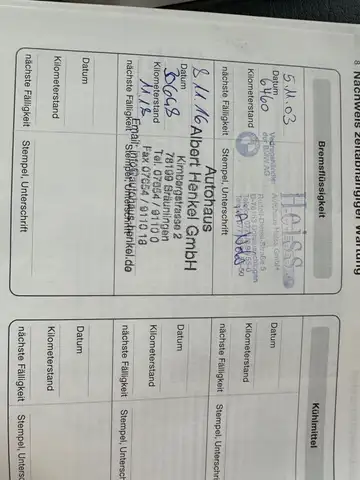 8 Nachweis
Wartung
Bremsflüssigkeit
5.11.03
Datum
6460
Kilometerstand
nächste Fälligkeit
Stempel, Unterschrift
Heiss
8.11.16
Datum
30698
Kilometerstand
11.18
nächste Fälligkeit
Stempel, Unterschrift
Autohaus
Albert Henkel GmbH
Kirnbergstrasse 2
78199 Bräunlingen
Tel. 07654 / 9110 0
Fax 07654 / 9110 18
Email: info@autohaus-henkel.de
Datum
Kilometerstand
nächste Fälligkeit
Stempel, Unterschrift
Kühlmittel
Datum
Kilometerstand
nächste Fälligkeit
Stempel, Unterschr
Datum
Kilometerstand
nächste Fälligkeit
Stempel, Unterschr
Datum
Kilometerstand
nächste Fälligkeit
Stempel, Unterschr